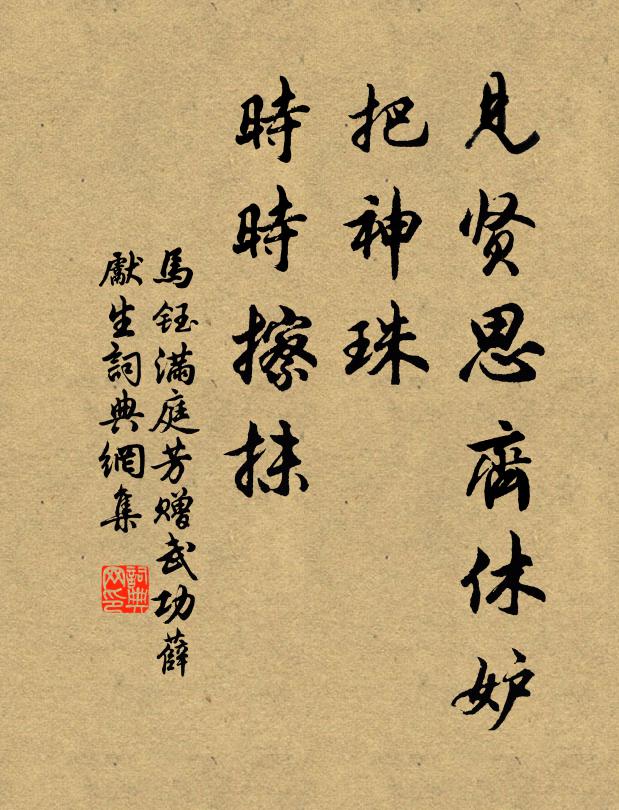 見贤思齊休妒
把神珠
時時擦抹
馬钰满庭芳赠武功薛
獻生詞典網集
詞典
网印